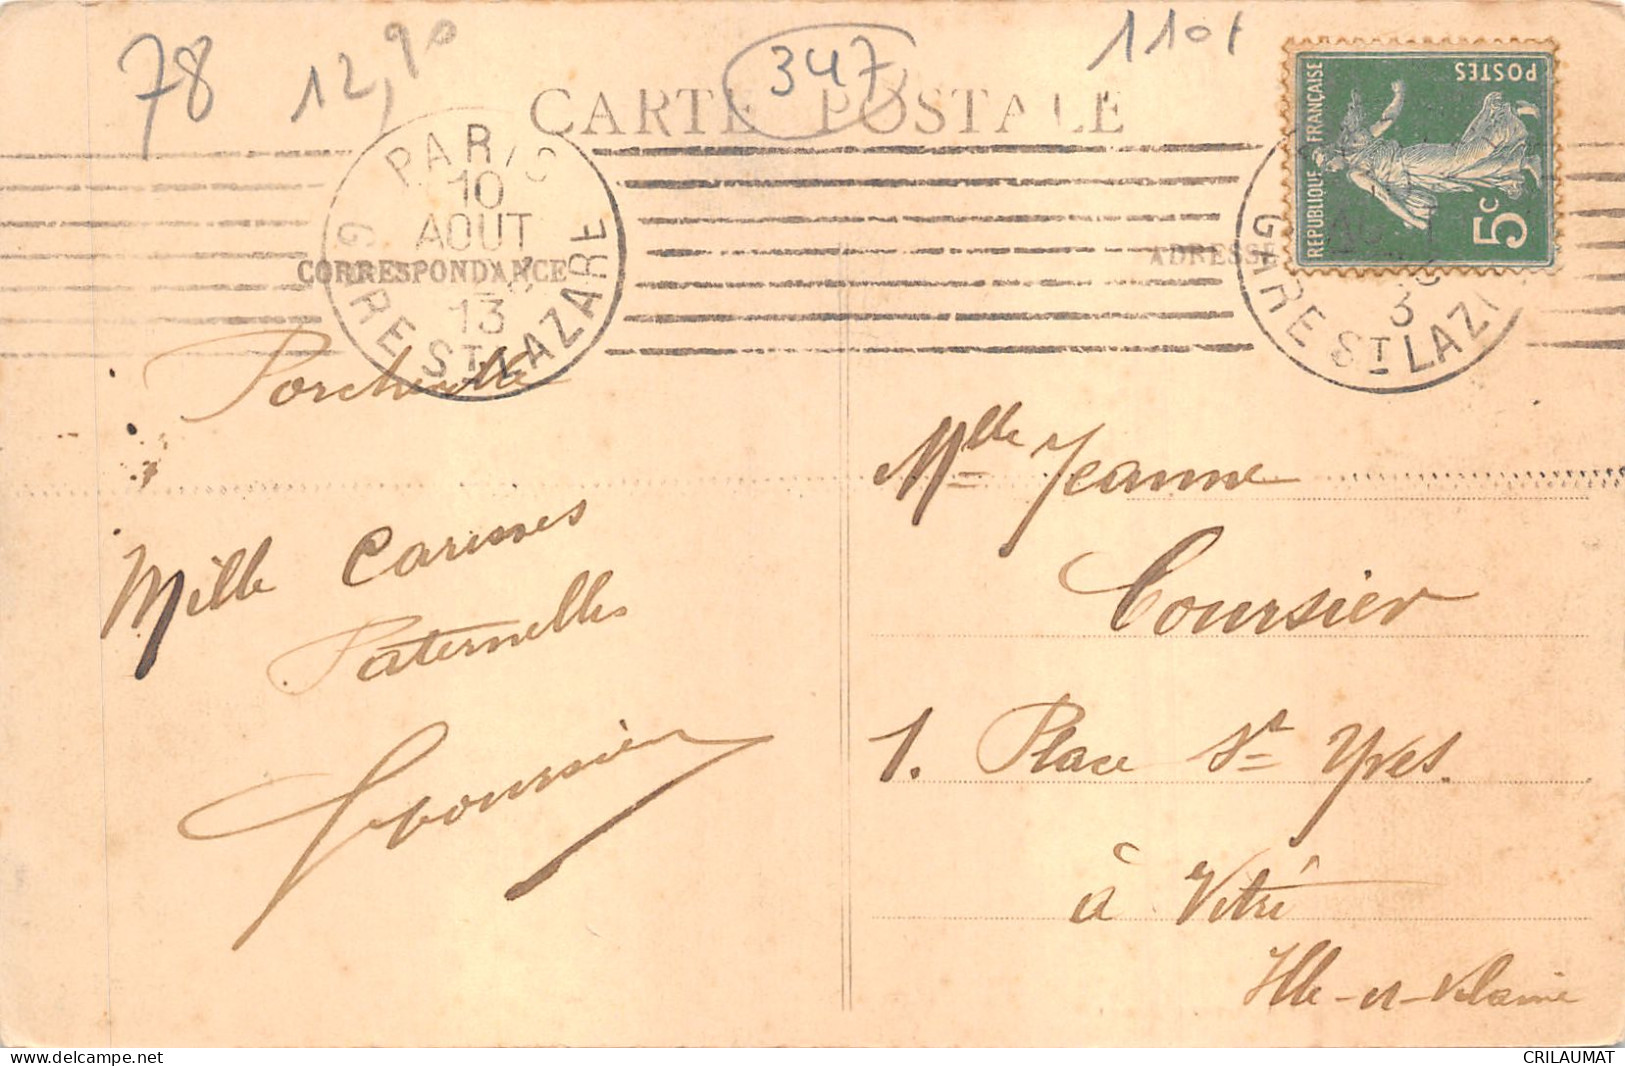 78
12,90
347
1101
CARTE POSTALE
PARIS
10
AOUT
13
GARE ST LAZARE
CORRESPONDANCE
ADRESSE
GARE ST LAZ
REPUBLIQUE FRANÇAISE
POSTES
5c
Porcheville
Mille Caresses
Paternelles
Mlle Jeanne
Coursier
1. Place St Yves.
à Vitré
Ille-et-Vilaine
CRILAUMAT